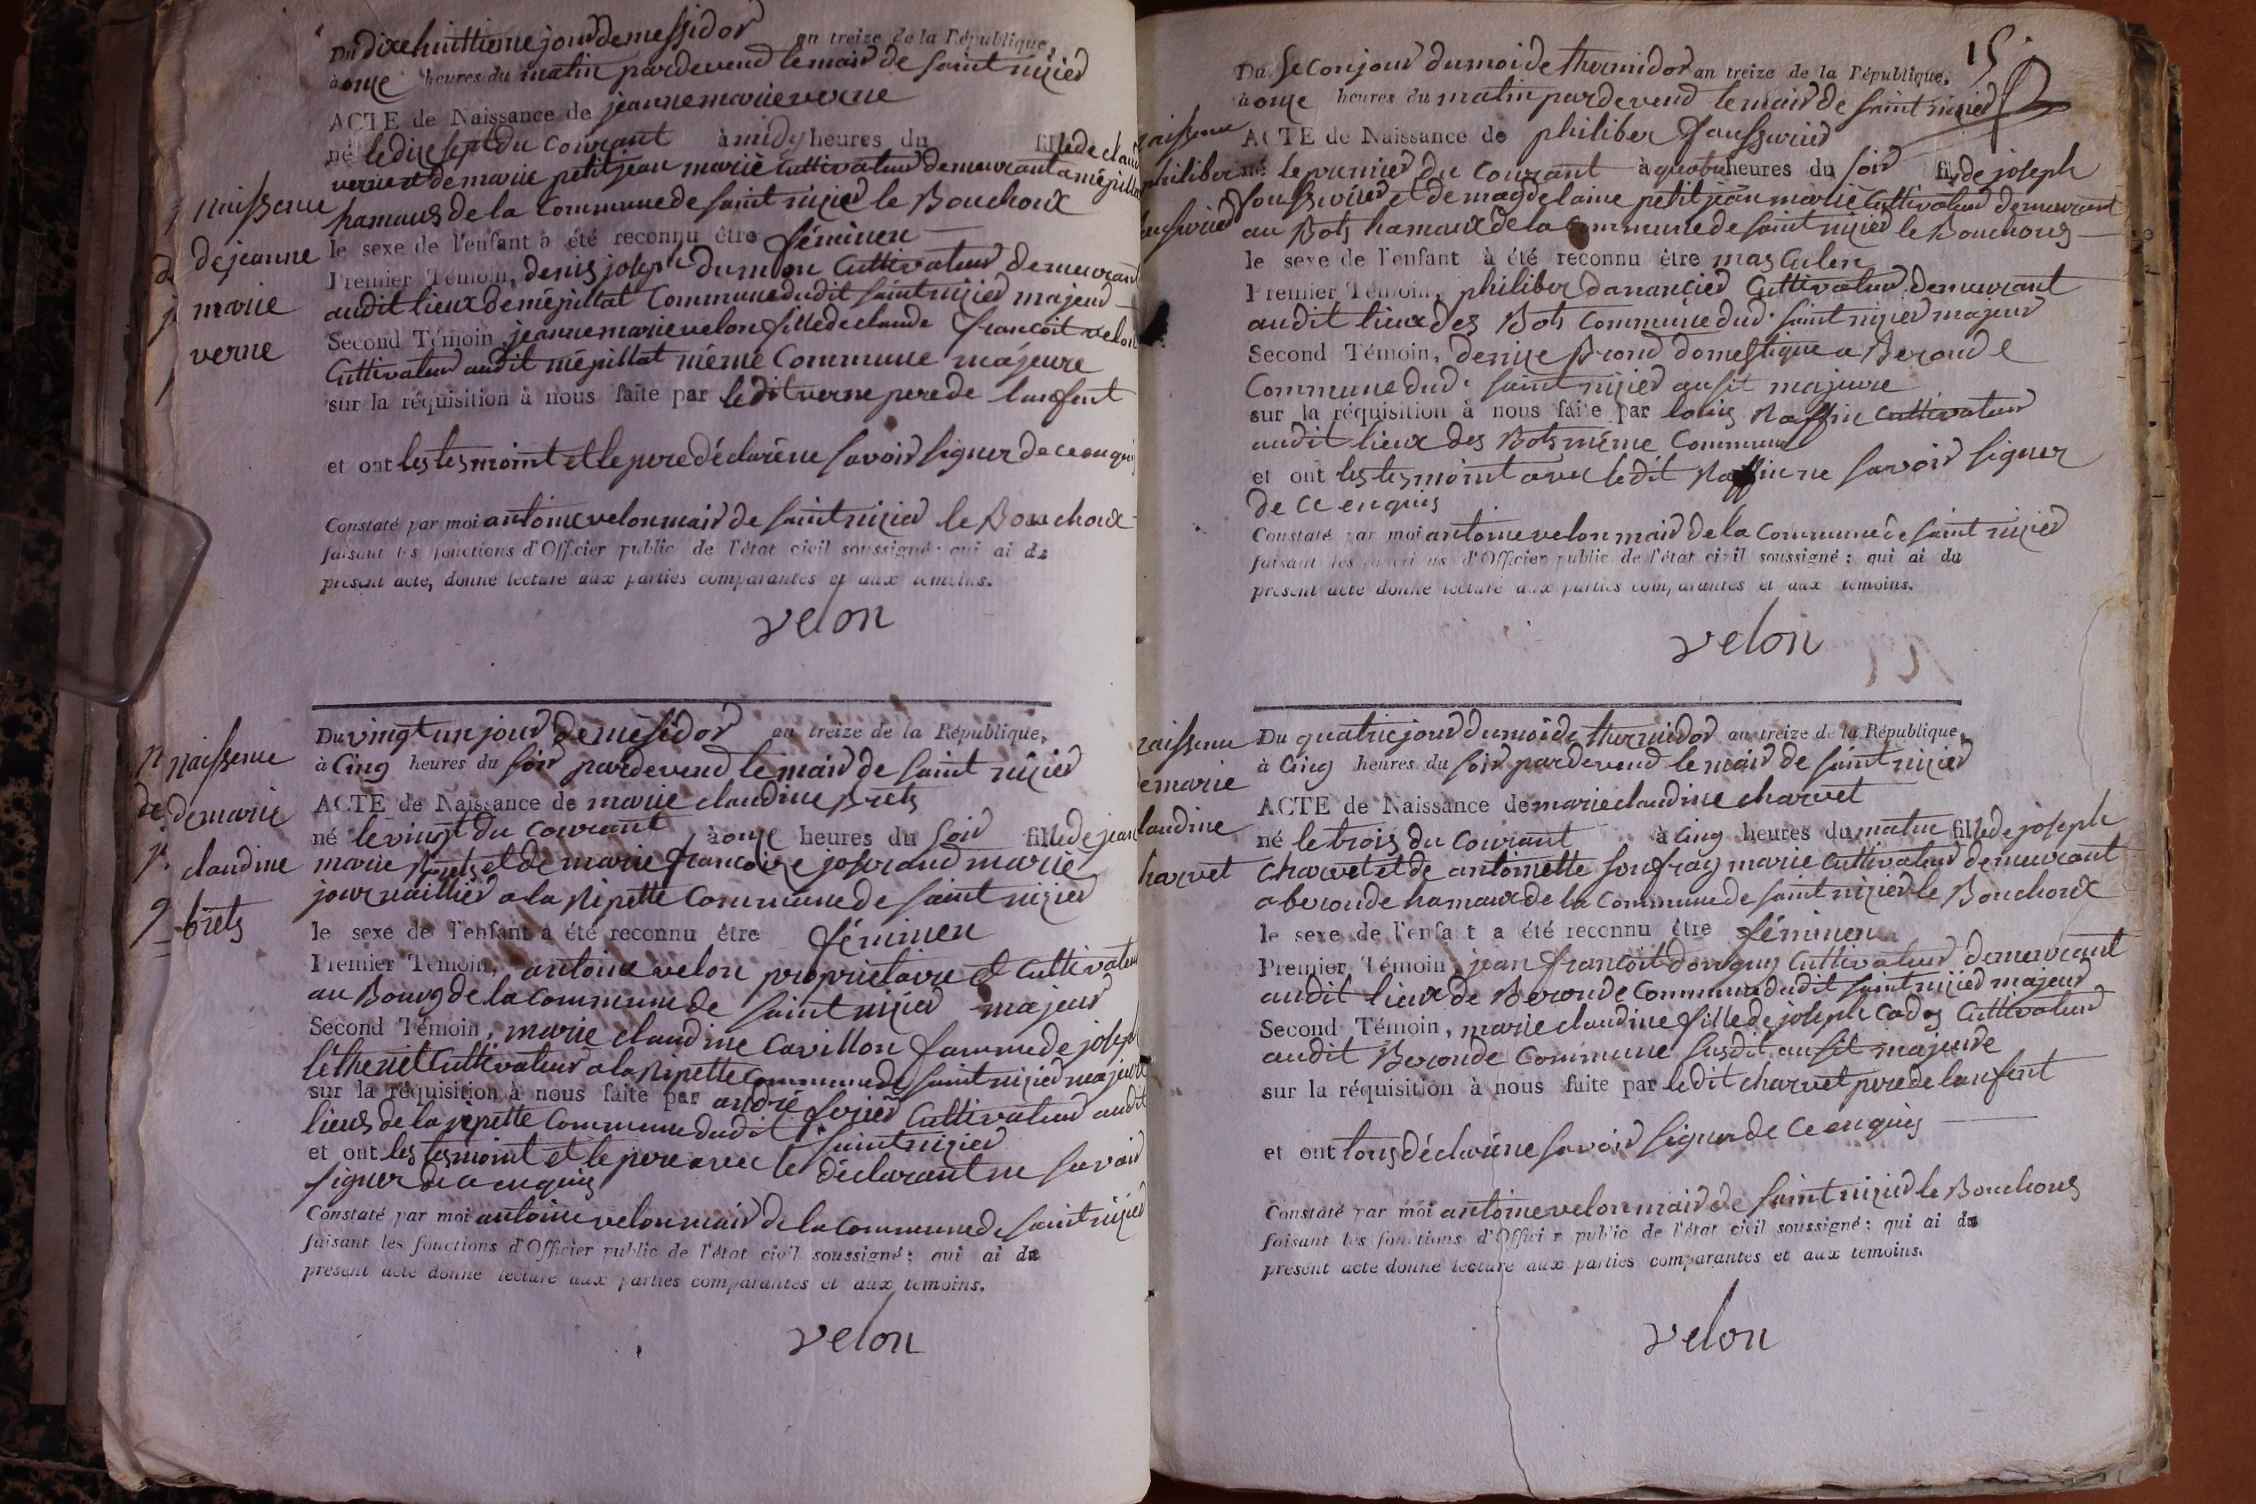 Du dixe huittieme jour de messidor an treize de la République,
à onze heures du matin pardevend le maid de saint nizied
ACTE de Naissance de jeanne marie verne
né le dix sept du Courant à midy heures du fille de claud
verne et de marie petit jean marié Cultivateur demeurant a mépillat
hamaus de la Commune de saint nizied le Bouchoux
le sexe de l'enfant a été reconnu être féminen
Premier Témoin, denis joseph dumon Cultivateur demeurant
audit lieux de mépillat Commune dudit saint nizied majeur
Second Témoin, jeanne marie velon fille de claude francoit velon
Cultivateur audit mépillat même Commune majeure
sur la réquisition à nous faite par le dit verne pere de lansfent
et ont les tesmoint et le pere déclaré ne savoir signer de ce enquis
Constaté par moi antoine velon maid de saint nizied le Bouchoux
faisant les fonctions d'Officier public de l'état civil soussigné: qui ai du
présent acte, donné lecture aux parties comparantes et aux témoins.
velon
naissence
de jeanne
marie
verne
Du vingt un jour de mésidor an treize de la République,
à Cinq heures du soir pardevend le maid de saint nizied
ACTE de Naissance de marie claudine Brets
né le vingt du courant à onze heures du soir fille de jean
marie Brets et de marie francoise josrand marié
journaillier a la Ripette Commune de saint nizied
le sexe de l'enfant a été reconnu être féminen
Premier Témoin, antoine velon proprietaire et Cultivateur
au Bourg de la Commune de saint nizied majeur
Second Témoin, marie claudine Cavillon famme de joseph
lethenet Cultivateur a la Ripette Commune de saint nizied majeure
sur la réquisition à nous faite par andré Cultivateur audit
lieus de la ripette Commune dudit saint nizied
et ont les tesmoint et le pere avec le déclarant ne savoir
signer de ce enquis
Constaté par moi antoine velon maid de la Commune de saint nizied
faisant les fonctions d'Officier public de l'état civil soussigné: qui ai du
présent acte donné lecture aux parties comparantes et aux témoins.
velon
naissence
de marie
claudine
brets
15
Du secon jour du moi de thermidor an treize de la République,
à onze heures du matin pardevend le maid de saint nizied
ACTE de Naissance de philiber saussuried
né le premier du Courant à quatre heures du soir fils de joseph
et de magdelaine petit jean marié Cultivateur demeurant
au Bots hamaux de la Commune de saint nizied le Bouchous
le sexe de l'enfant à été reconnu être masculen
Premier Témoin, philiber dananzied Cultivateur demeurant
audit lieux des Bots Commune dud. saint nizied majeur
Second Témoin, denize Brond domestique a Beronde
Commune dud. saint nizied ausit majeure
sur la réquisition à nous faite par louis Raffin Cultivateur
audit lieux des Bots même Commune
et ont les tesmoint avec le dit Raffin ne savoir signer
de ce enquis
Constaté par moi antoine velon maid de la Commune de saint nizied
faisant les fonctions d'Officier public de l'état civil soussigné: qui ai du
présent acte donné lecture aux parties comparantes et aux témoins.
velon
naissence
philiber
Du quatrie jour du moi de thermidor an treize de la République,
à Cinq heures du soir pardevend le maid de saint nizied
ACTE de Naissance de marie claudine charvet
né le trois du Courant à Cinq heures du matin fille de joseph
charvet et de antoinette marié Cultivateur demeurant
a beronde hamaux de la Commune de saint nizied le Bouchoux
le sexe de l'enfant a été reconnu être féminen
Premier Témoin, jean francoit donguy Cultivateur demeurant
audit lieux de Beronde Commune dudit saint nizied majeur
Second Témoin, marie claudine fille de joseph Cadoz Cultivateur
audit Beronde Commune susdit ausit majeure
sur la réquisition à nous faite par le dit charvet pere de lansfent
et ont tous déclaré ne savoir signer de ce enquis
Constaté par moi antoine velon maid de saint nizied le Bouchous
faisant les fonctions d'Officier public de l'état civil soussigné: qui ai du
présent acte donné lecture aux parties comparantes et aux témoins.
velon
naissence
de marie
claudine
charvet